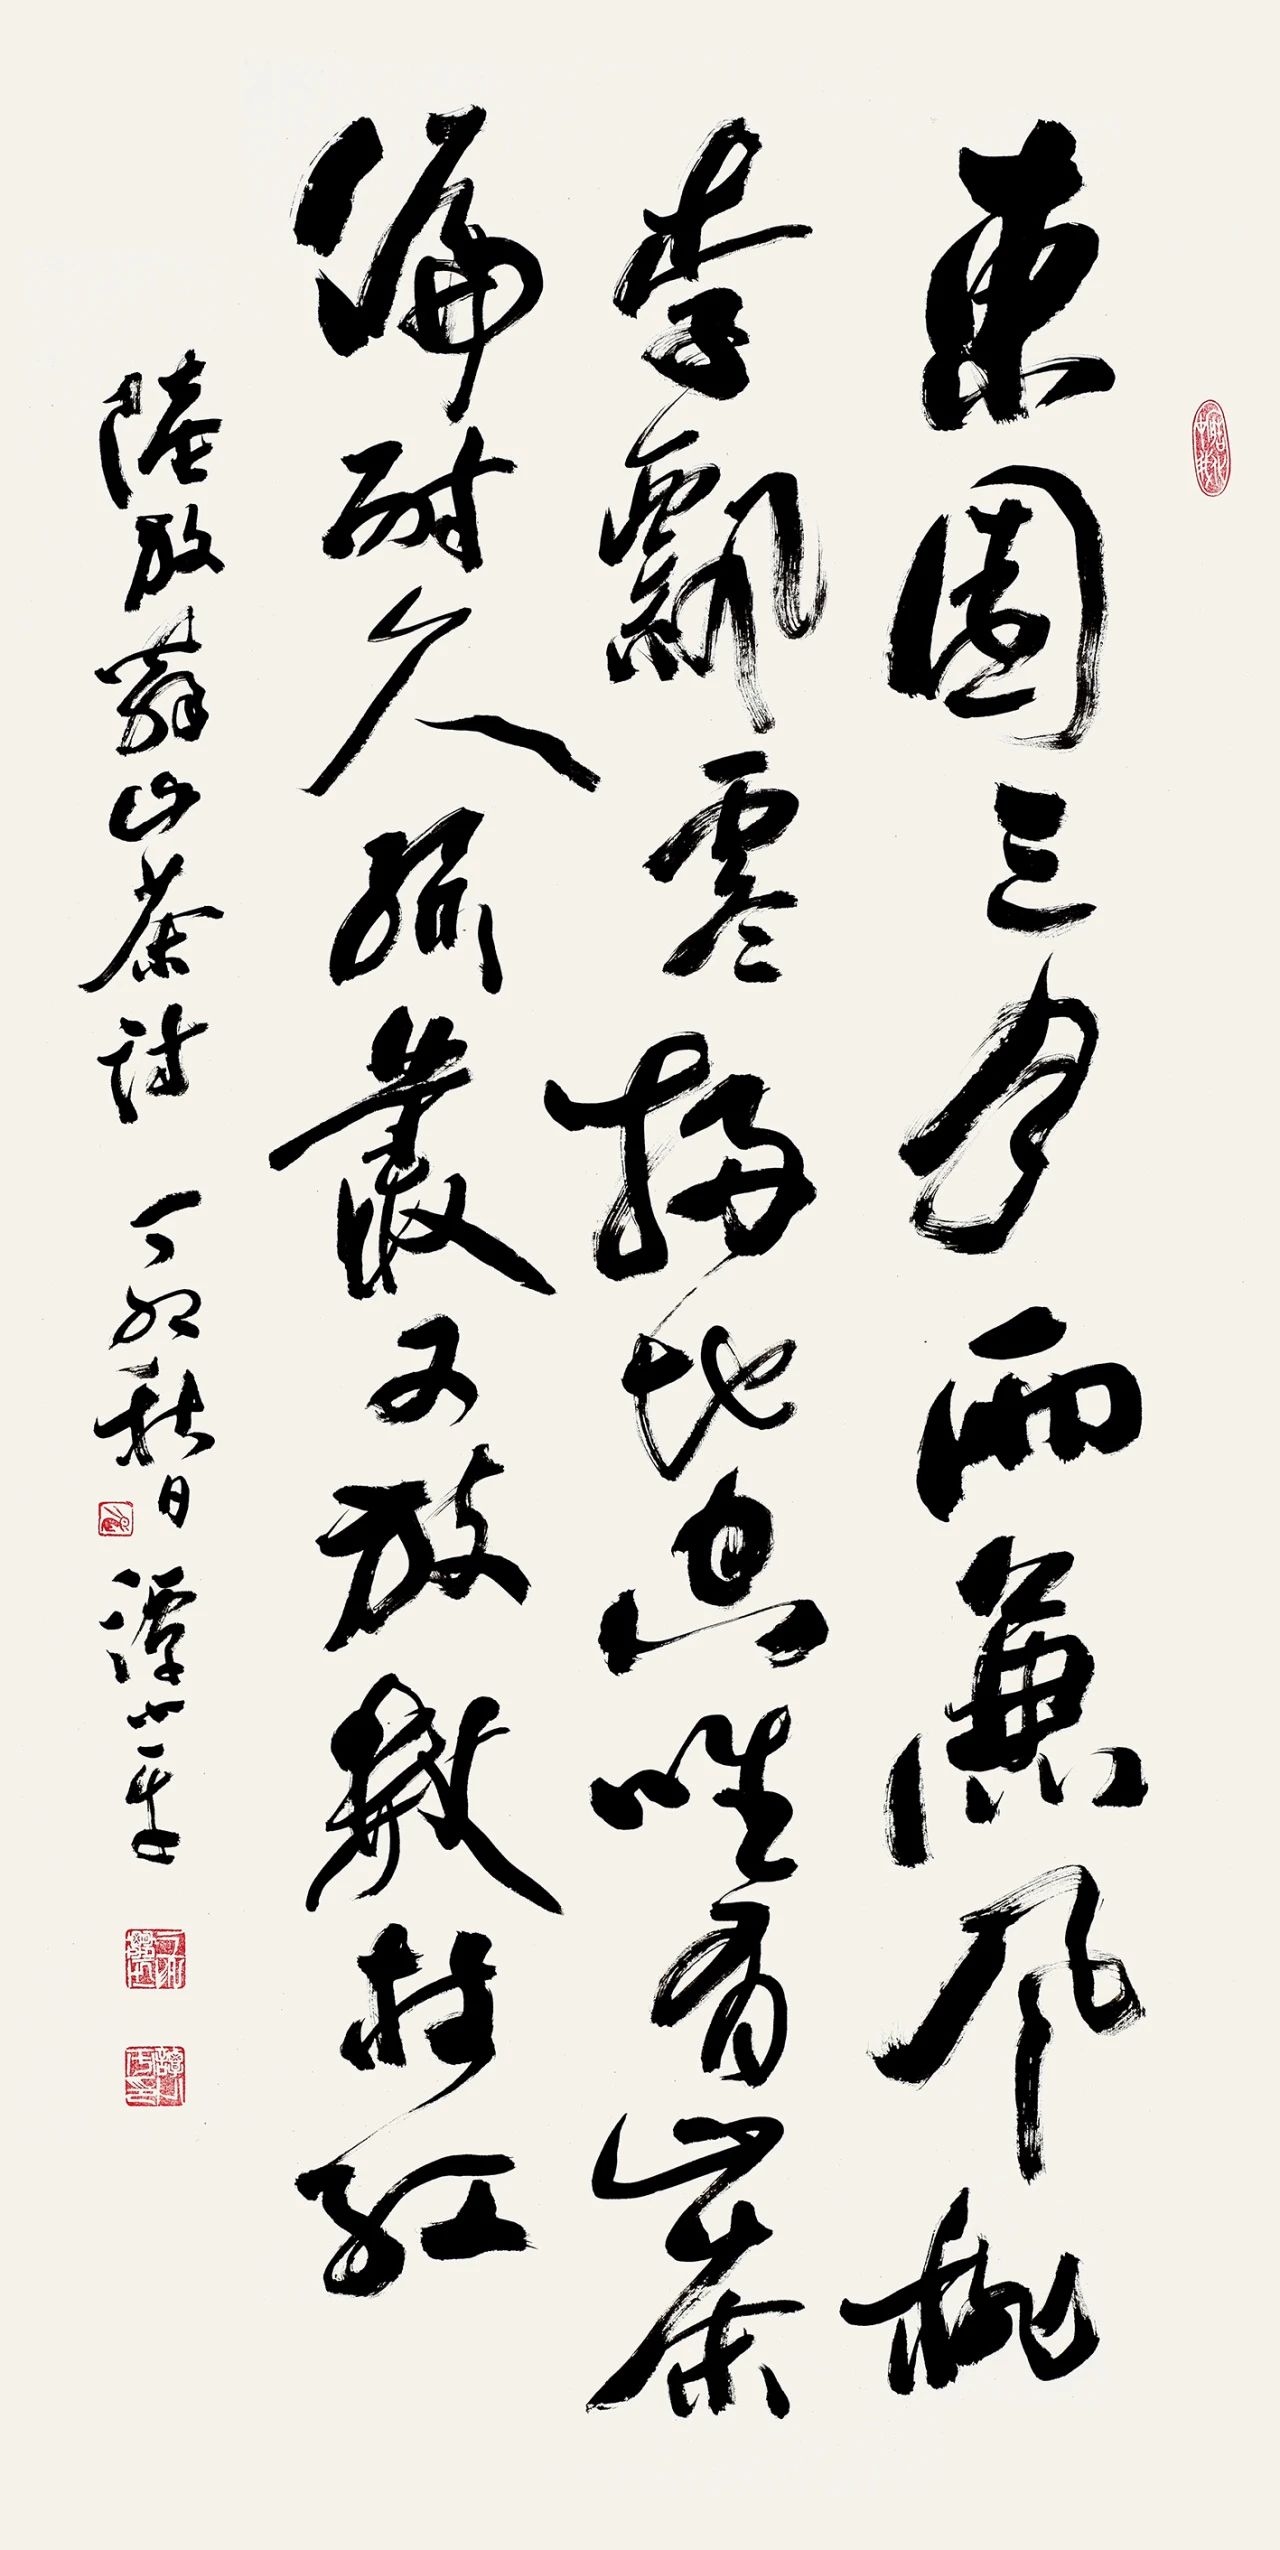 東園三月雨兼風桃
李飄零掃地空唯有山茶
偏耐久綠叢又放數枝紅
陸放翁山茶詩 丁酉秋日 譚小平